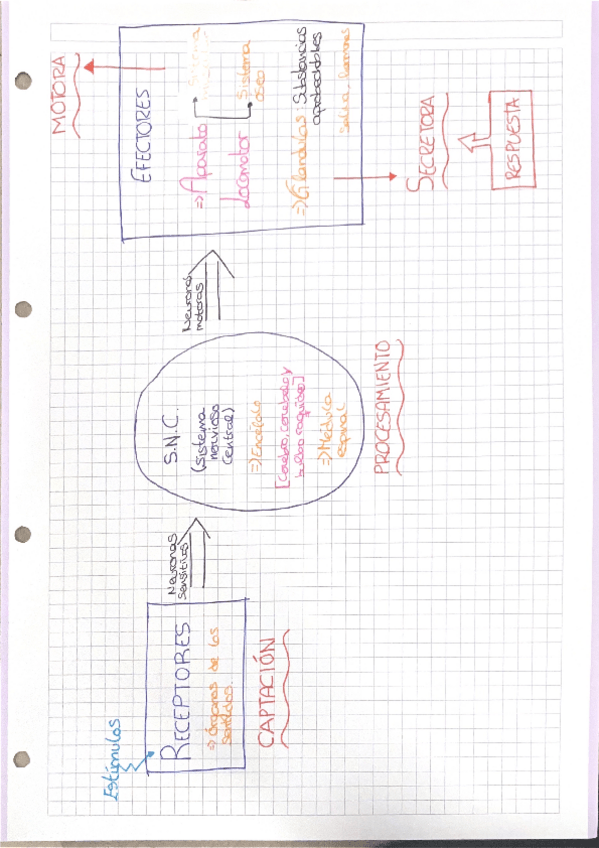 Estímulos
RECEPTORES
⇒ Órganos de los
sentidos.
CAPTACIÓN
Neuronas
sensitivas
S.N.C.
(Sistema
nervioso
central)
⇒ Encéfalo
[Cerebro, cerebelo y
bulbo raquídeo]
⇒ Médula
espinal
PROCESAMIENTO
Neuronas
motoras
EFECTORES
⇒ Aparato
Locomotor
Sistema
Sistema
óseo
⇒ Glándulas: Substancias
aprobechables
saliva, lágrimas
MOTORA
SECRETORA
RESPUESTA